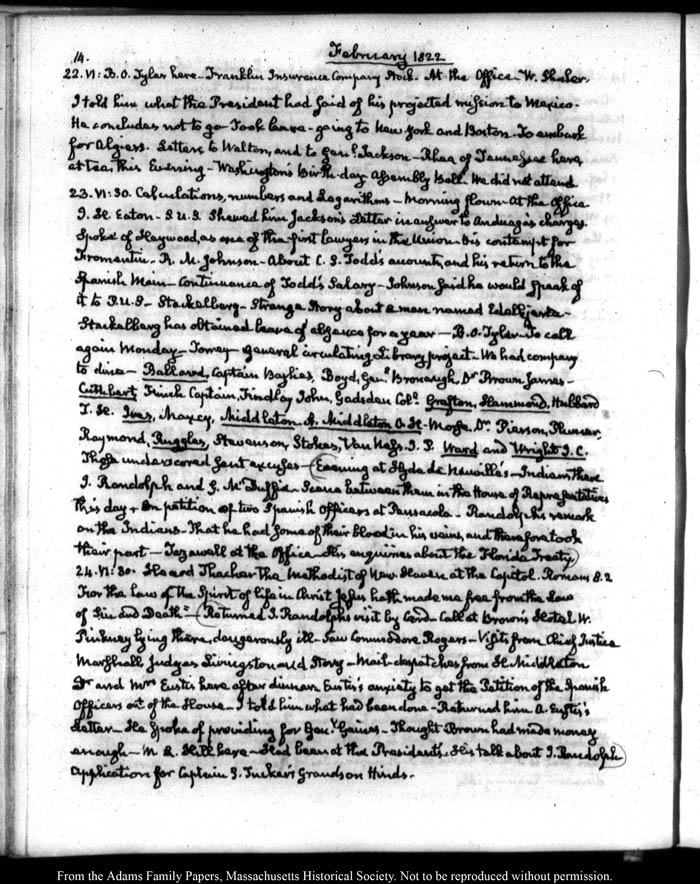 14.
February 1822
22. VI: B. O. Tyler here - Franklin Insurance Company Stock. At the Office - W. Shaler.
I told him what the President had said of his projected mission to Mexico -
He concludes not to go - Took leave - going to New York and Boston - To embark
for Algiers. Letters to Walton, and to Genl. Jackson - Rhea of Tennessee here,
at tea, this Evening - Washington's Birth-day Assembly Ball. We did not attend
23. VI: 30. Calculations, numbers and Logarithms - Morning flown - At the Office
J. H. Eaton - S.U.S. Shewed him Jackson's Letter in answer to Anduaga's charges.
Spoke of Haywood, as one of the first lawyers in the Union - his contempt for
Fromentin - R. M. Johnson - About C. S. Todd's accounts, and his return to the
Spanish Main - Continuance of Todd's Salary - Johnson said he would speak of
it to P.U.S - Stackelberg - Strange Story about a man named
Stackelberg has obtained leave of absence for a year - B. O. Tyler - To call
again Monday - Torrey - general circulating Library project - We had company
to dine - Ballard, Captain Baylies, Boyd, Genl. Bronaugh Dr. Brown James -
Cuthbert, Finch Captain, Findlay John, Gadsden Coll. Grafton, Hammond, Hubbard
T. H. Ives, Maxcy, Middleton A. Middleton O. H. - Morse, Dr. Pierson, Plumer,
Raymond, Ruggles, Stevenson, Stokes, Van Ness. J. P. Ward and Wright J. C.
Those underscored sent excuses - (Evening at Hyde de Neuville's - Indians there
J. Randolph and G. McDuffie. Scene between them in the House of Representatives
this day + On petition of two Spanish Officers at Pensacola - Randolph's remark
on the Indians - That he had some of their blood in his veins, and therefore took
their part - Tazewell at the Office - His enquiries about the Florida Treaty)
24. VI: 30. Heard Thacher the Methodist of New Haven at the Capitol. Romans 8. 2
For the Law of the Spirit of life in Christ Jesus hath made me free from the Law
of Sin and Death = (Returned J. Randolph's visit by Card - Call at Brown's Hotel. W.
Pinkney lying there, dangerously ill - Saw Commodore Rogers - Visits from Chief Justice
Marshall, Judges Livingston and Story - Mail - despatches from H. Middleton
Dr. and Mrs. Eustis here after dinner. Eustis's anxiety to get the Petition of the Spanish
Officers out of the House - I told him what had been done - Returned him A. Eustis's
Letter - He spoke of providing for Genl. Gaines - Thought Brown had made money
enough - M. L. Hill here - Had been at the President's. His talk about J. Randolph)
Application for Captain S. Tucker's Grandson Hinds.
From the Adams Family Papers, Massachusetts Historical Society. Not to be reproduced without permission.